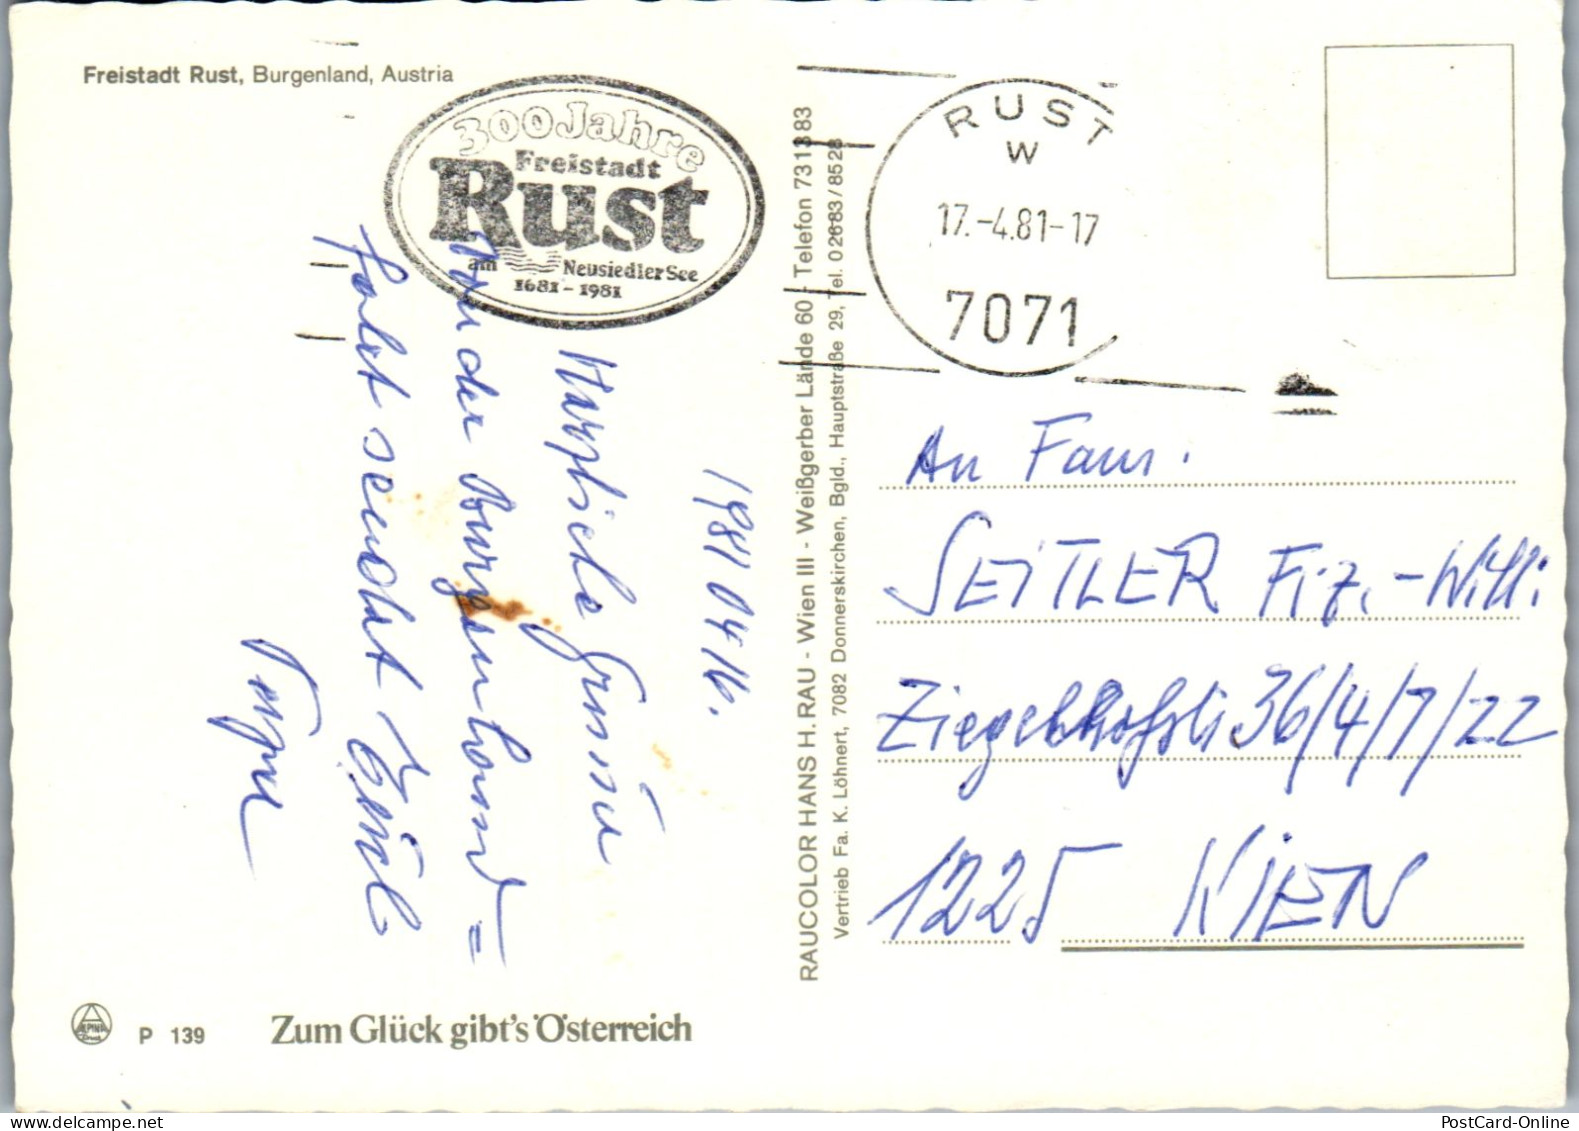 Freistadt Rust, Burgenland, Austria
300 Jahre
Freistadt
Rust
am Neusiedler See
1681 - 1981
RUST
W
17.-4.81-17
7071
1981 04 16.
Herzliche Grüße
von der Burgenland=
fahrt sendet Euch
RAUCOLOR HANS H. RAU - Wien III - Weißgerber Lände 60 - Telefon 73 13 83
Vertrieb Fa. K. Löhnert, 7082 Donnerskirchen, Bgld., Hauptstraße 29, Tel. 02683/8528
An Fam.
SEITLER Frz.-Willi
36/4/7/22
1225 WIEN
ALPINA
Druck
P 139
Zum Glück gibt's Österreich
PostCard-Online
delcampe.net